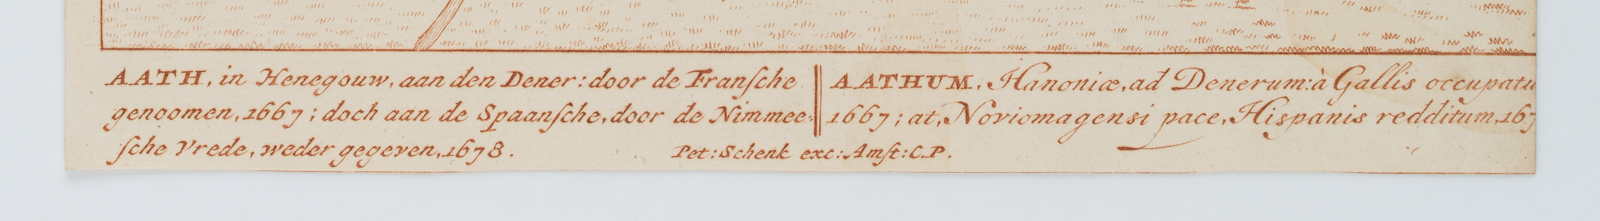 AATH, in Henegouw, aan den Dener: door de Franſche
genoomen, 1667; doch aan de Spaanſche, door de Nimmee:
ſche Vrede, weder gegeven, 1678.
AATHUM, Hanoniæ, ad Denerum: à Gallis occupatu
1667; at, Noviomagensi pace, Hispanis redditum, 167
Pet: Schenk exc: Amſt: C.P.